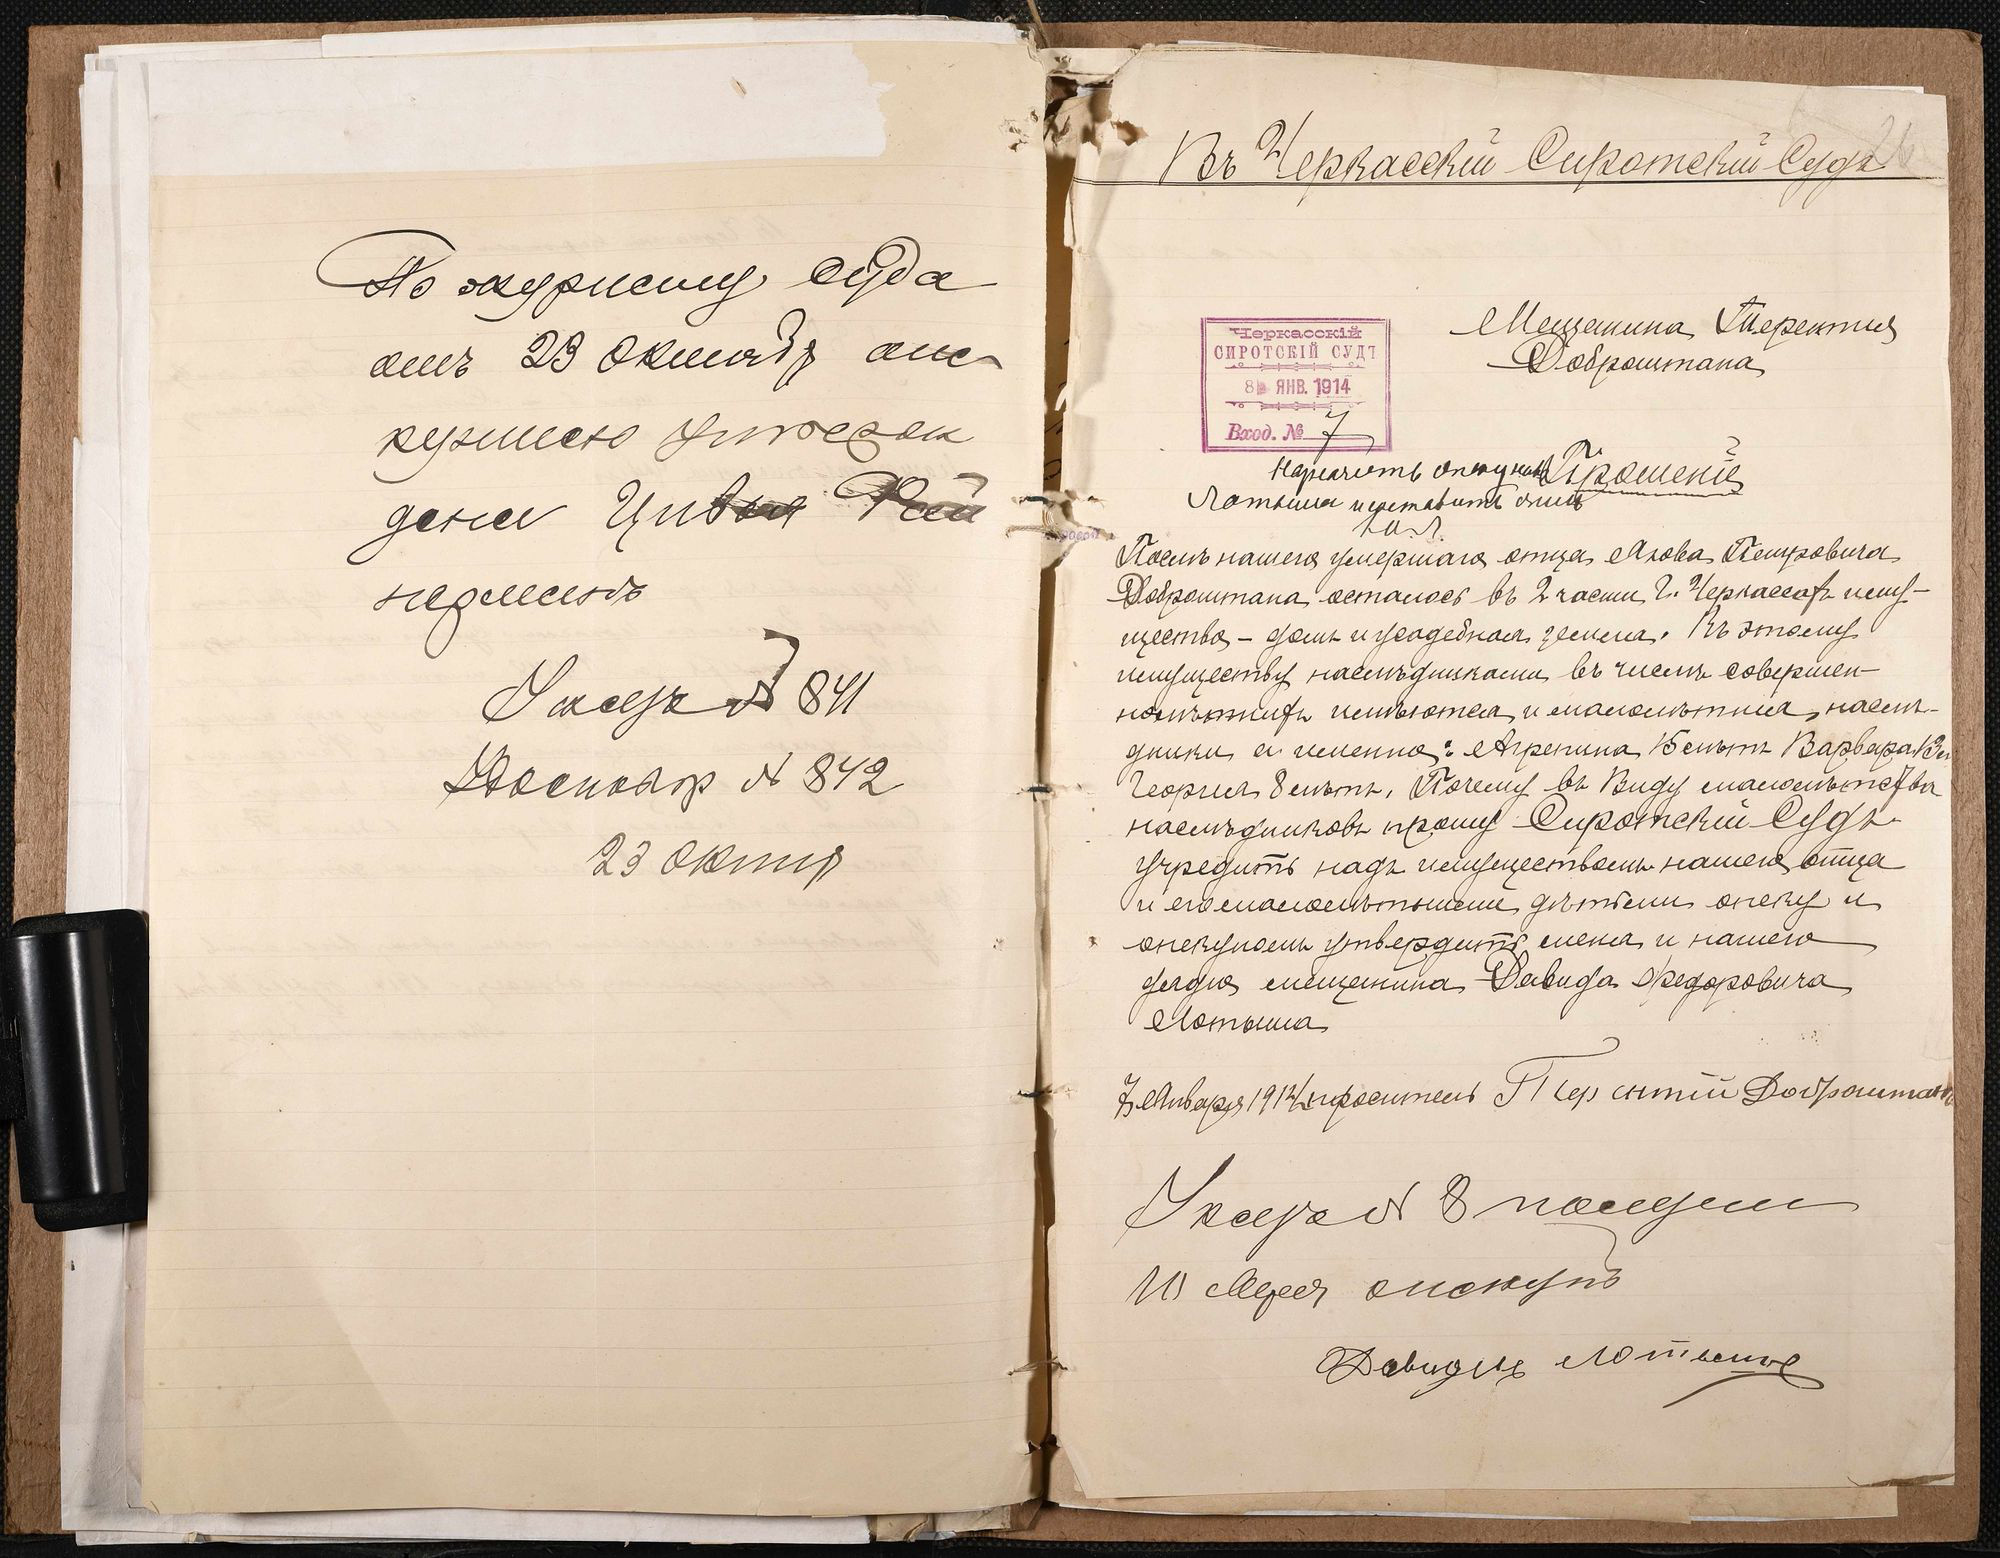 По журналу суда
отъ 23 Октября опе-
куншею утверж
дена
Указъ № 841
№ 842
23 Октяр
Въ Черкасскій Сиротскій Судъ
26
Мещанина Терентия
Доброштана
Черкасскій
СИРОТСКІЙ СУДЪ
8 ЯНВ. 1914
Вход. № 7
Назначить опекуномъ
Прошеніе
Лотыша и составить опись
Послѣ нашего умершаго отца Якова Петровича
Доброштана осталось въ 2 части г. Черкассахъ иму-
щество - домъ и усадебная земля. Къ этому
имуществу наслѣдниками въ числѣ совершен-
нолѣтнихъ имѣются и малолѣтніе наслѣ-
дники а именно: Агрепина 15 лѣтъ Варвара 13 л
Георгия 8 лѣтъ. Почему въ виду малолѣтства
наслѣдниковъ прошу Сиротскій Судъ
учредить надъ имуществомъ нашего отца
и его малолѣтними дѣтьми опеку и
опекуномъ утвердить меня и нашего
дядю мещанина Давида Федоровича
Лотыша
7 Января 1914 проситель Терентій Доброштан
Указъ № 8 получил
опекунъ
Давидъ Лотышъ